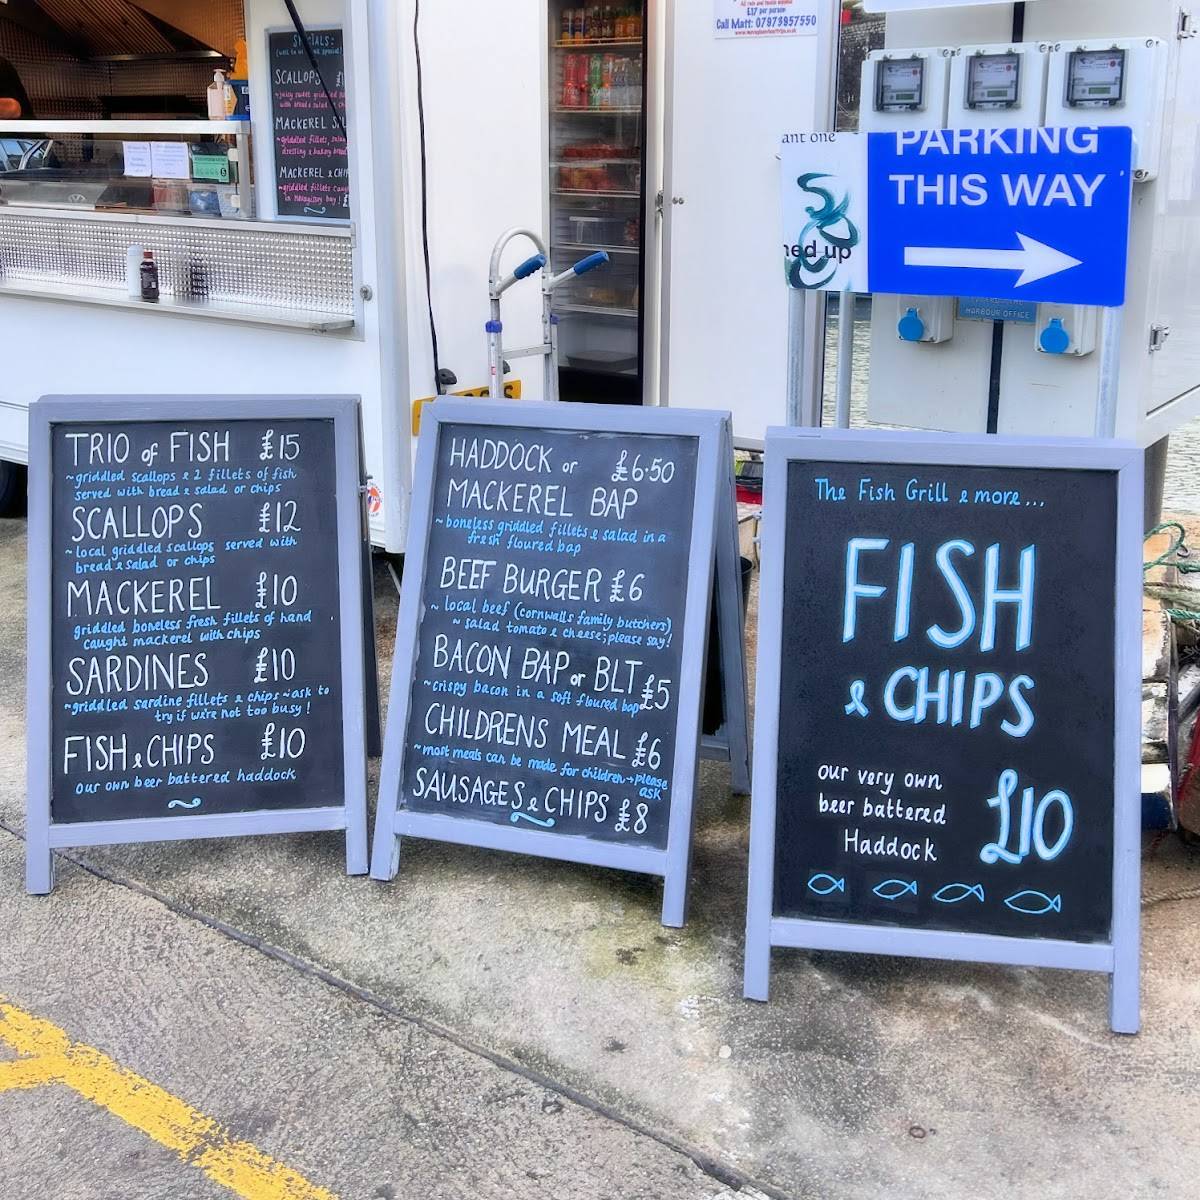 SPECIALS:
SCALLOPS
MACKEREL
MACKEREL & CHIPS
£17 per person
Call Matt: 07973957550
ant one
ned up
PARKING
THIS WAY
HARBOUR OFFICE
TRIO of FISH £15
~griddled scallops & 2 fillets of fish
served with bread & salad or chips
SCALLOPS £12
~local griddled scallops served with
bread & salad or chips
MACKEREL £10
griddled boneless fresh fillets of hand
caught mackerel with chips
SARDINES £10
~griddled sardine fillets & chips ~ask to
try if we're not too busy!
FISH & CHIPS £10
our own beer battered haddock
HADDOCK or £6.50
MACKEREL BAP
~boneless griddled fillets & salad in a
fresh floured bap
BEEF BURGER £6
~local beef (cornwalls family butchers)
~ salad tomato & cheese; please say!
BACON BAP or BLT £5
~crispy bacon in a soft floured bap
CHILDRENS MEAL £6
~most meals can be made for children → please
ask
SAUSAGES & CHIPS £8
The Fish Grill & more...
FISH
& CHIPS
our very own
beer battered
Haddock
£10